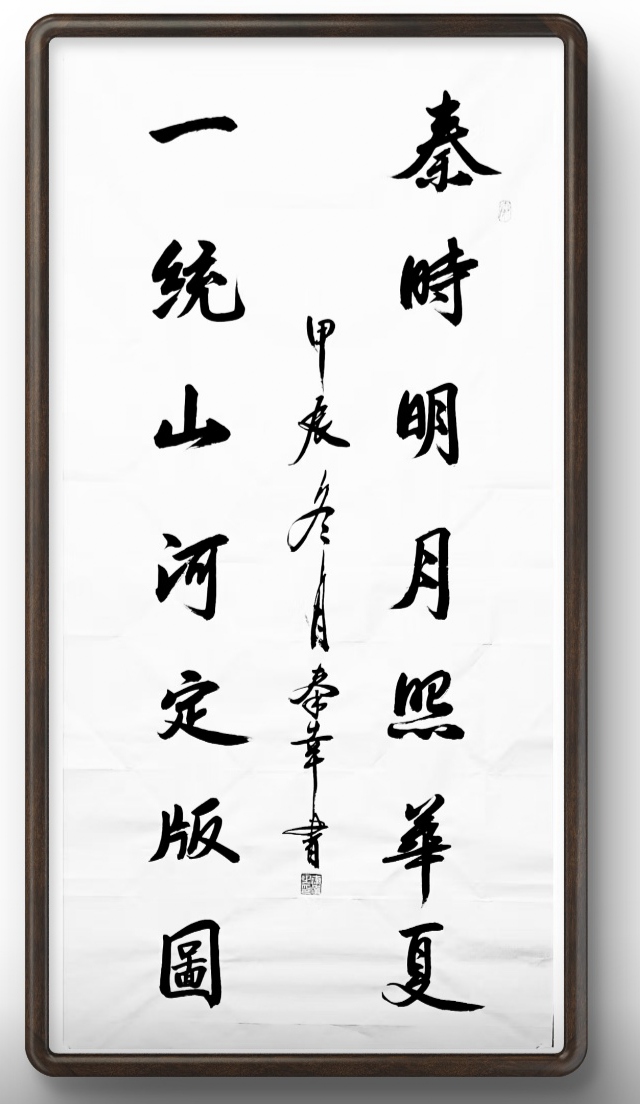 秦時明月照華夏
甲辰冬月秦韋書
一統山河定版圖